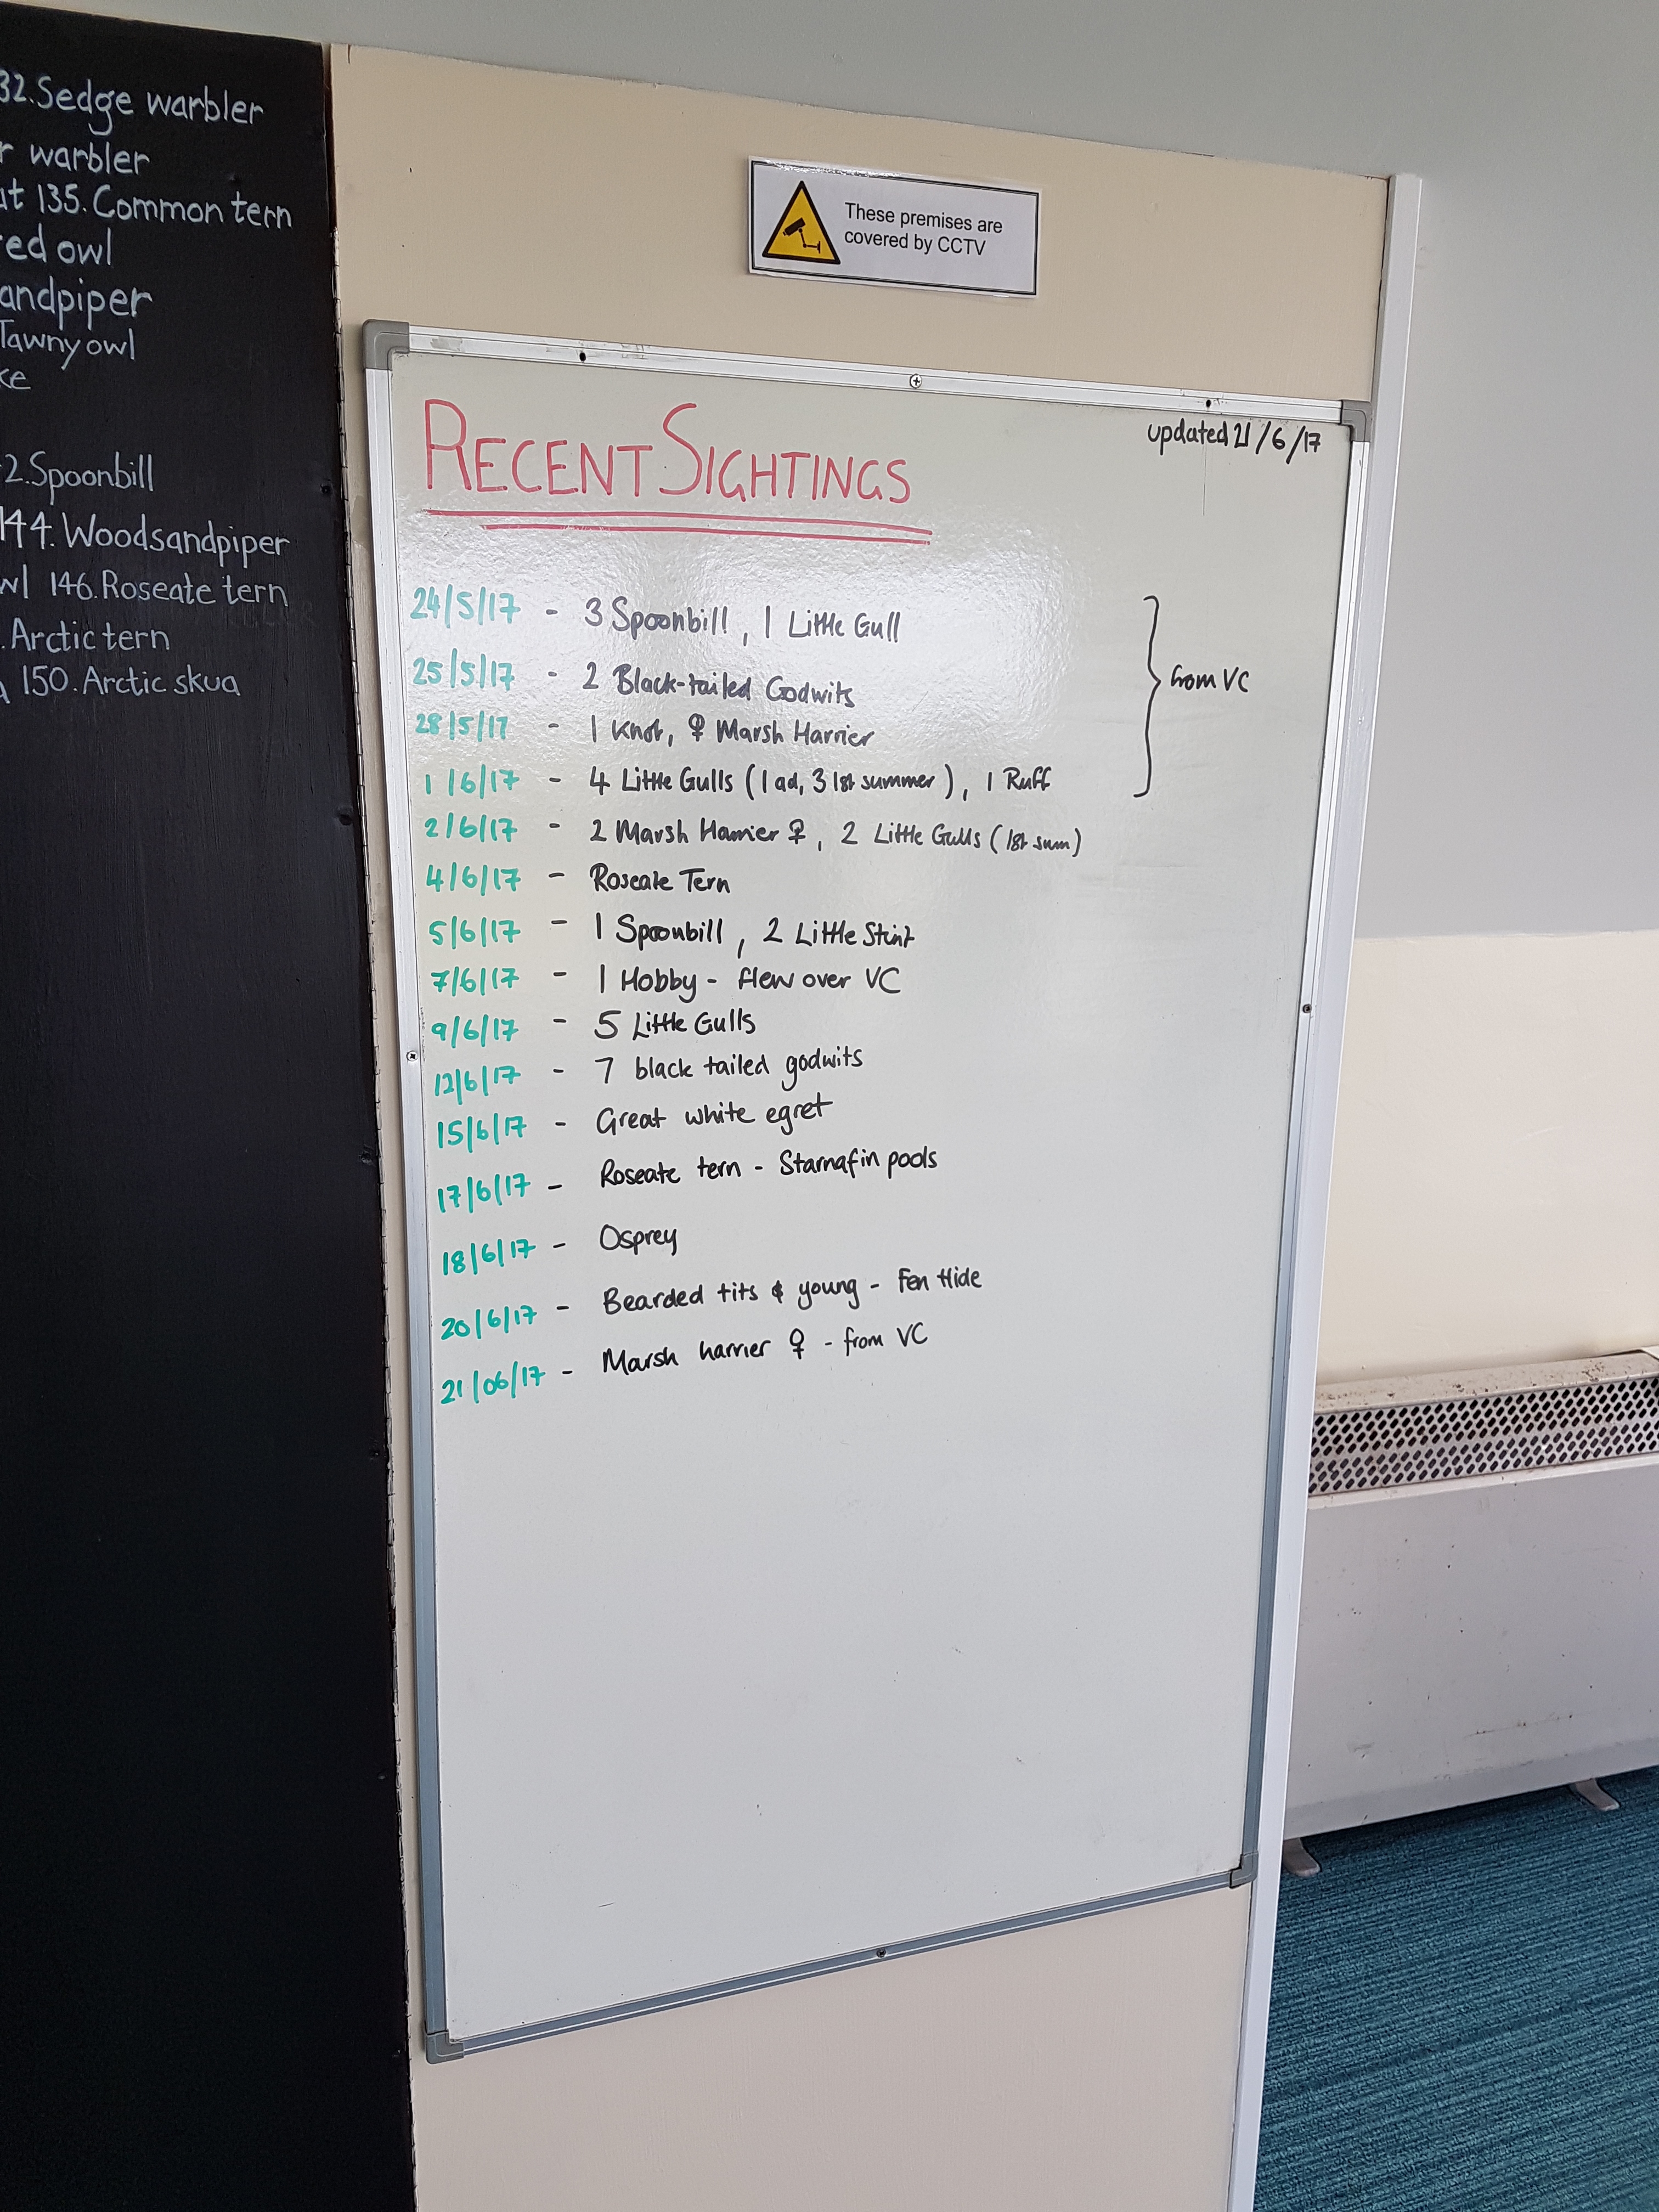 32.Sedge warbler
r warbler
ut 135.Common tern
red owl
andpiper
Tawny owl
ke
2.Spoonbill
144.Woodsandpiper
wl 146.Roseate tern
.Arctic tern
150.Arctic skua
These premises are
covered by CCTV
RECENT SIGHTINGS
updated 21/6/17
24/5/17 - 3 Spoonbill, 1 Little Gull
25/5/17 - 2 Black-tailed Godwits
from VC
28/5/17 - 1 Knot, ♀ Marsh Harrier
1/6/17 - 4 Little Gulls (1 ad, 3 1st summer), 1 Ruff
2/6/17 - 2 Marsh Harrier ♀, 2 Little Gulls (1st sum)
4/6/17 - Roseate Tern
5/6/17 - 1 Spoonbill, 2 Little Stint
7/6/17 - 1 Hobby - flew over VC
9/6/17 - 5 Little Gulls
12/6/17 - 7 black tailed godwits
15/6/17 - Great white egret
17/6/17 - Roseate tern - Starnafin pools
18/6/17 - Osprey
20/6/17 - Bearded tits & young - Fen Hide
21/06/17 - Marsh harrier ♀ - from VC